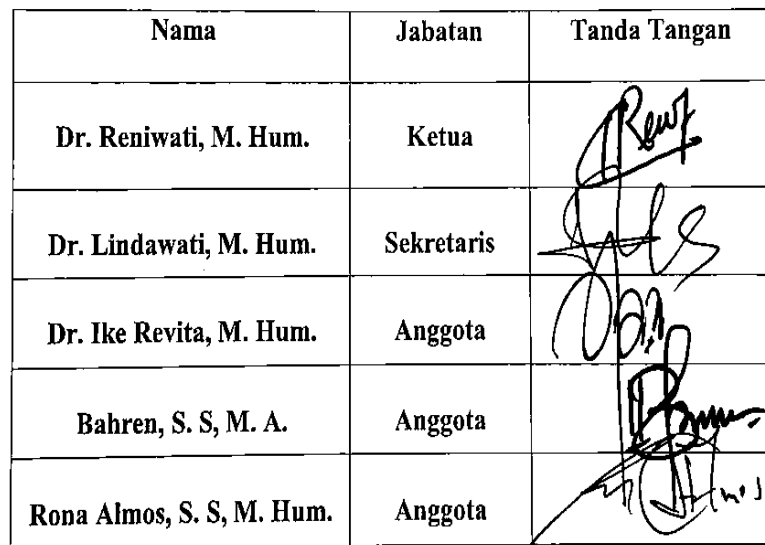 Nama Jabatan Tanda Tangan
Dr. Reniwati, M. Hum. Ketua
Dr. Lindawati, M. Hum. Sekretaris
Dr. Ike Revita, M. Hum. Anggota
Bahren, S. S, M. A. Anggota
Rona Almos, S. S, M. Hum. Anggota